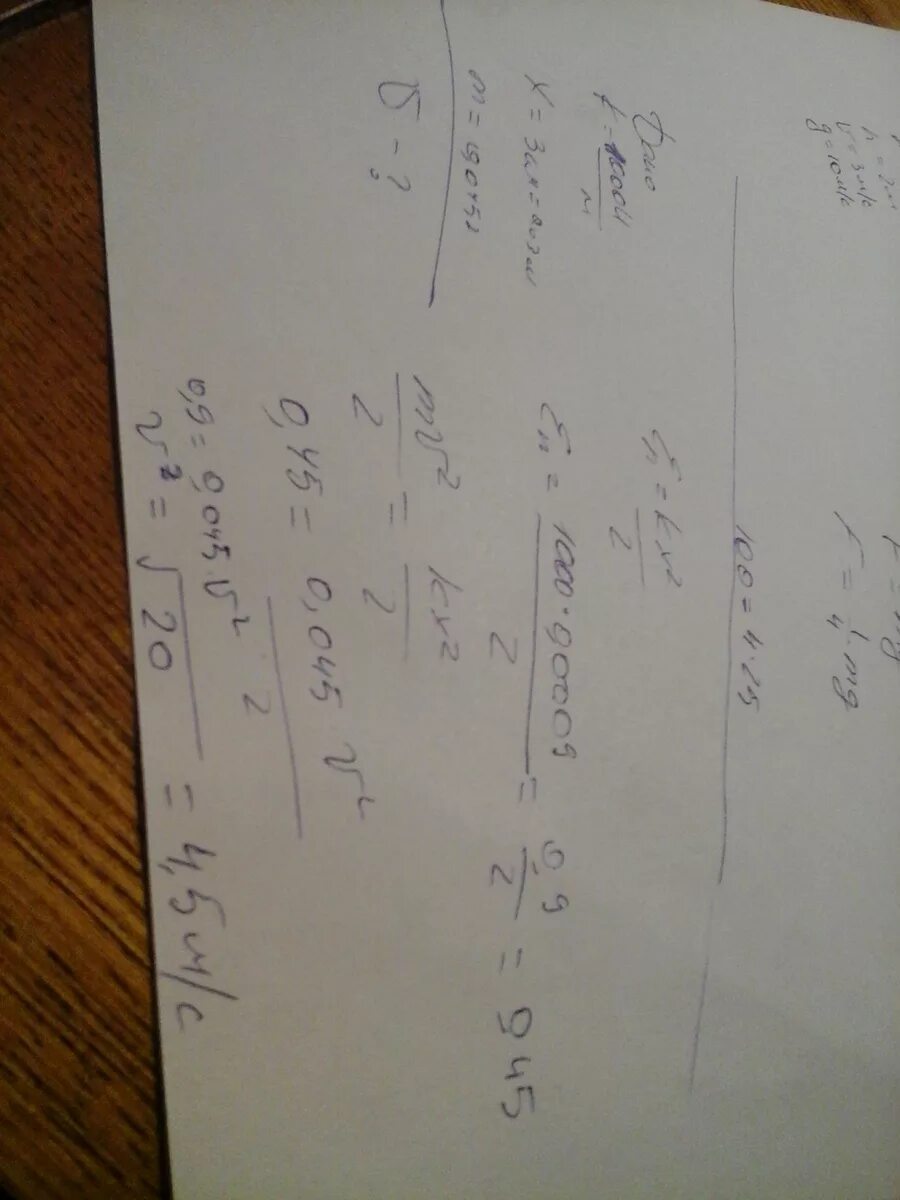 h = 2м
v = 3 м/с
g = 10 м/с
F = 1/4 · mg
100 = 4·25
Дано
k = 1000 Н/м
x = 3 см = 0,03 м
m = 0,045 г
v - ?
Eп = kx²/2
Eп = 1000·0,0009/2 = 0,9/2 = 0,45
mv²/2 = kx²/2
0,45 = 0,045 v²/2
0,9 = 0,045 v²
v² = √20 = 4,5 м/с